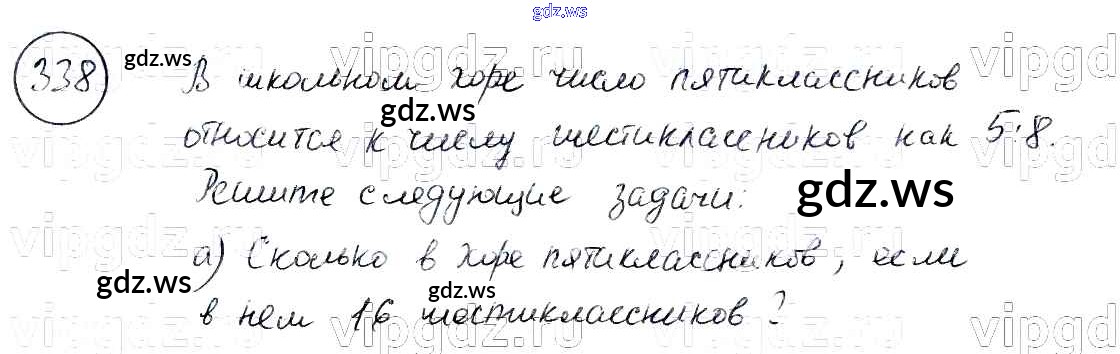 gdz.ws
338 В школьном хоре число пятиклассников
относится к числу шестиклассников как 5:8.
Решите следующие задачи:
а) Сколько в хоре пятиклассников, если
в нем 16 шестиклассников?
gdz.ws
gdz.ws
gdz.ws
gdz.ws
gdz.ws
vipgdz.ru